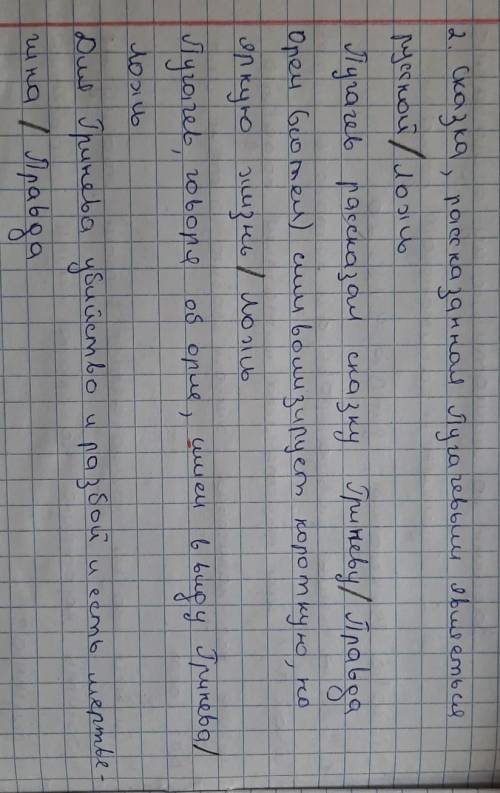 2. Сказка, рассказанная Пугачевым является
русской / ложь
Пугачев рассказал сказку Гриневу / Правда
Орел (вотем) символизирует короткую, но
яркую жизнь / ложь
Пугачев, говоря об орле, имел ввиду Гринева /
ложь
Для Гринева убийство и разбой и есть мертве-
чина / Правда